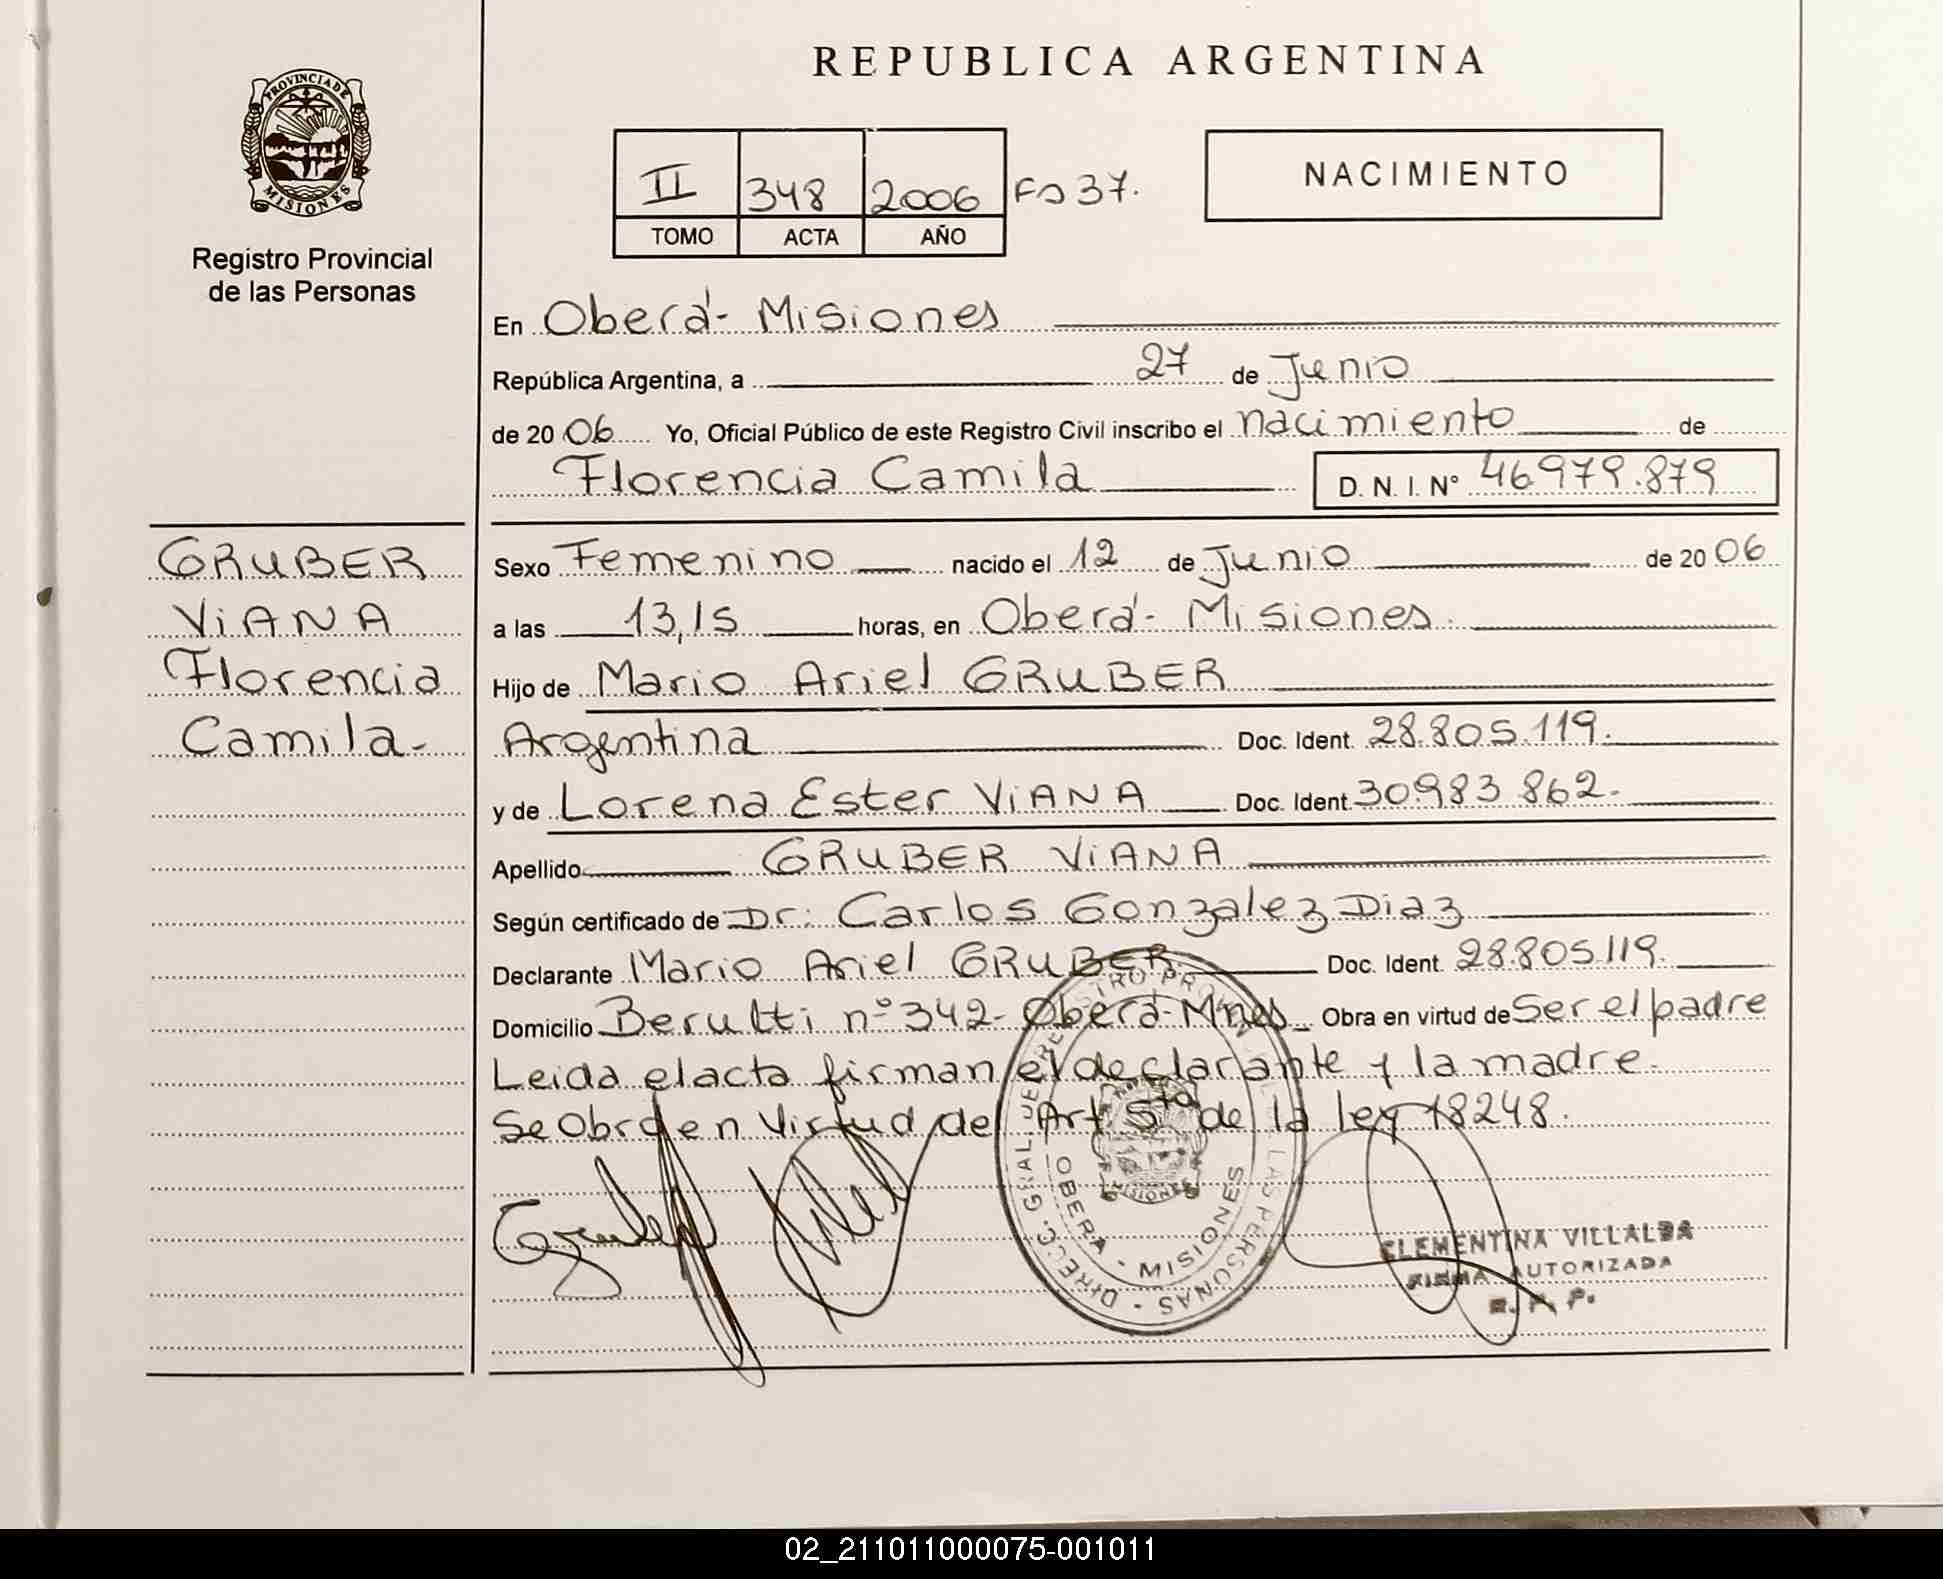 REPUBLICA ARGENTINA
PROVINCIA DE MISIONES
Registro Provincial
de las Personas
II 348 2006 Fo 37.
TOMO ACTA AÑO
NACIMIENTO
En Oberá- Misiones
República Argentina, a 27 de Junio
de 20 06 Yo, Oficial Público de este Registro Civil inscribo el nacimiento de
Florencia Camila D. N. I. Nº 46.979.879
GRUBER
VIANA
Florencia
Camila-
Sexo Femenino nacido el 12 de Junio de 20 06
a las 13,15 horas, en Oberá- Misiones.
Hijo de Mario Ariel GRUBER
Argentina Doc. Ident. 28.805.119.
y de Lorena Ester VIANA Doc. Ident. 30.983.862.
Apellido GRUBER VIANA
Según certificado de Dr: Carlos Gonzalez Diaz
Declarante Mario Ariel GRUBER Doc. Ident. 28.805.119.
Domicilio Berutti nº 342- Oberá- Mnes Obra en virtud de Ser el padre
Leida el acta firman el declarante y la madre.
Se Obra en Virtud del Art 5to de la ley 18248.
DIRECC. GRAL. DE REGISTRO PROV. LAS PERSONAS
OBERA - MISIONES
MISIONES
CLEMENTINA VILLALBA
FIRMA AUTORIZADA
R. P. P.
02_211011000075-001011